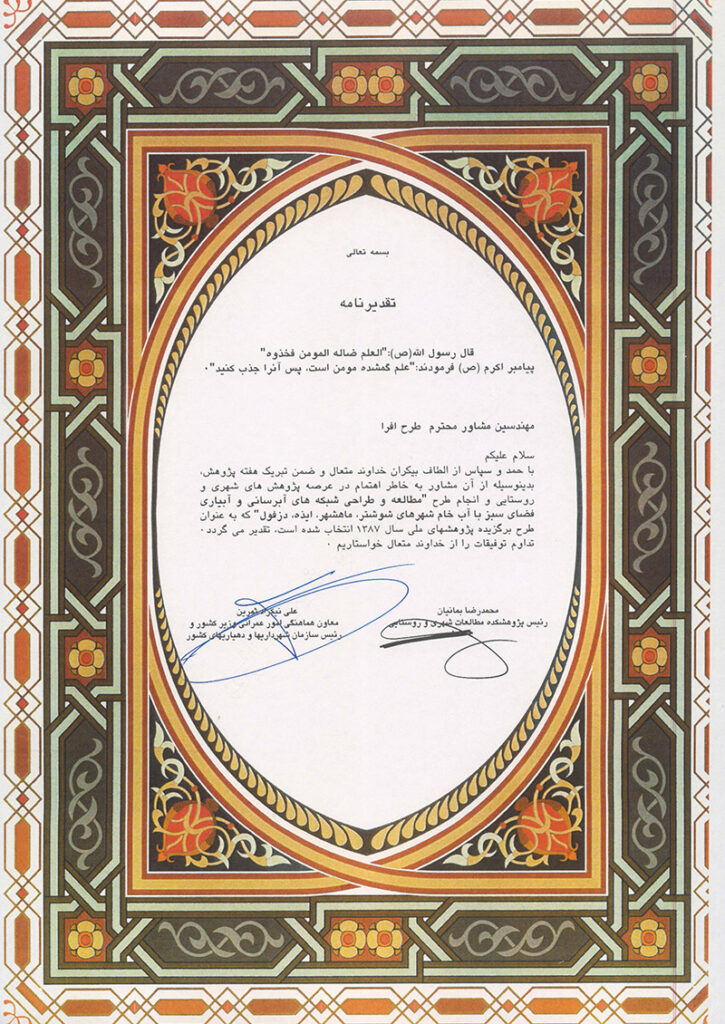 بسمه تعالی
تقدیرنامه
قال رسول الله(ص):"العلم ضاله المومن فخذوه"
پیامبر اکرم (ص) فرمودند:"علم گمشده مومن است، پس آنرا جذب کنید"۰
مهندسین مشاور محترم طرح افرا
سلام علیکم
با حمد و سپاس از الطاف بیکران خداوند متعال و ضمن تبریک هفته پژوهش،
بدینوسیله از آن مشاور به خاطر اهتمام در عرصه پژوهش های شهری و
روستایی و انجام طرح "مطالعه و طراحی شبکه های آبرسانی و آبیاری
فضای سبز با آب خام شهرهای شوشتر، ماهشهر، ایذه، دزفول" که به عنوان
طرح برگزیده پژوهشهای ملی سال ۱۳۸۷ انتخاب شده است، تقدیر می گردد۰
تداوم توفیقات را از خداوند متعال خواستاریم ۰
محمدرضا بمانیان
رئیس پژوهشکده مطالعات شهری و روستایی
علی
معاون هماهنگی امور عمرانی وزیر کشور و
رئیس سازمان شهرداریها و دهیاریهای کشور